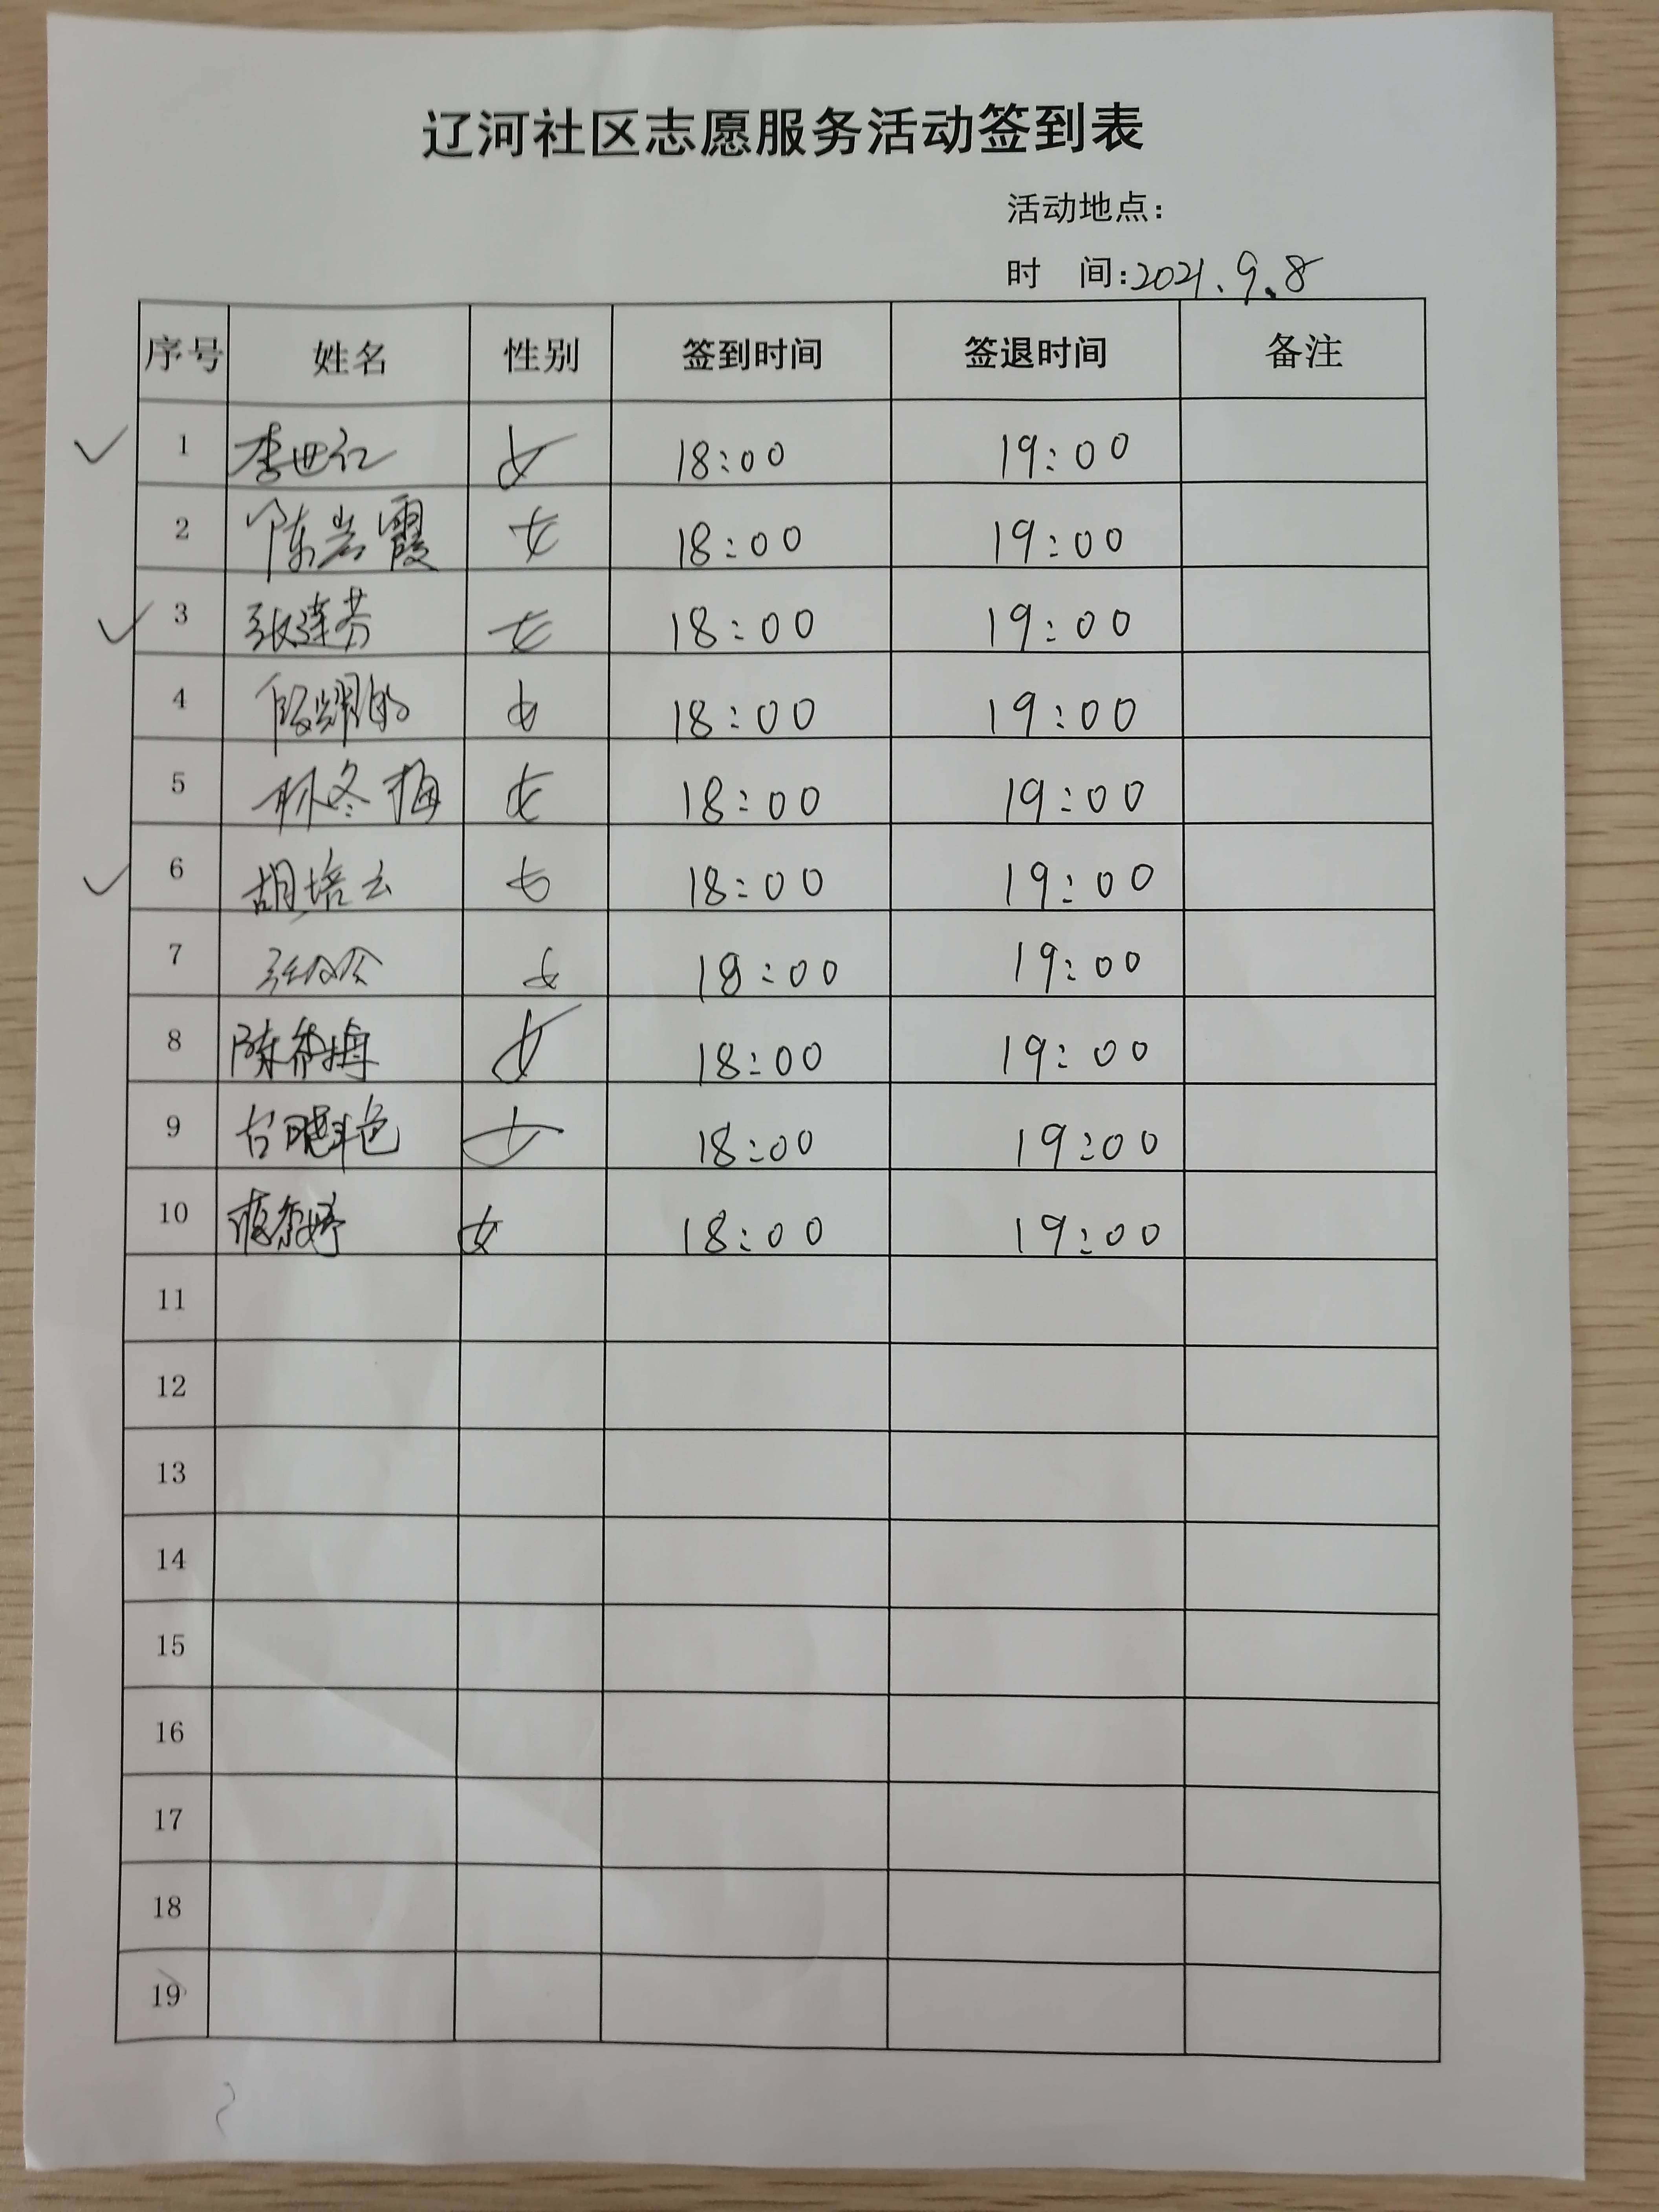 辽河社区志愿服务活动签到表
活动地点：
时 间:2021.9.8
序号 姓名 性别 签到时间 签退时间 备注
1 李世红 女 18:00 19:00
2 陈岩霞 女 18:00 19:00
3 张连芬 女 18:00 19:00
4 女 18:00 19:00
5 林冬梅 女 18:00 19:00
6 胡培云 女 18:00 19:00
7 女 18:00 19:00
8 陈希梅 女 18:00 19:00
9 女 18:00 19:00
10 女 18:00 19:00
11
12
13
14
15
16
17
18
19